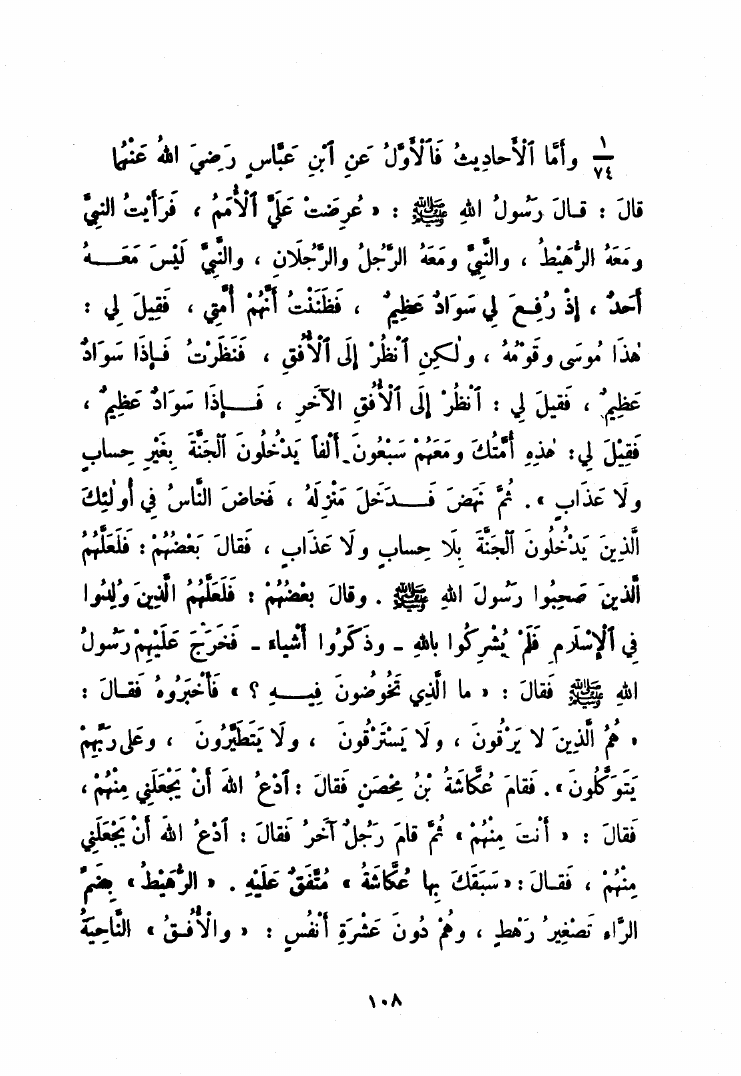 ١/٧٤ وأَمَّا ٱلْأَحاديثُ فَٱلْأَوَّلُ عَنِ ٱبْنِ عَبَّاسٍ رَضِيَ اللهُ عَنْهُما
قالَ : قـالَ رَسُولُ اللهِ ﷺ : « عُرِضَتْ عَلَيَّ ٱلْأُمَمُ ، فَرَأَيْتُ النبِيَّ
ومَعَهُ الرُّهَيْطُ ، والنَّبِيَّ ومَعَهُ الرَّجُلُ والرَّجُلَانِ ، والنَّبِيَّ لَيْسَ مَعَـــهُ
أَحَدٌ ، إذْ رُفِـعَ لِي سَوَادٌ عَظِيمٌ ، فَظَنَنْتُ أَنَّهُمْ أُمَّتِي ، فَقِيلَ لِي :
هٰذَا مُوسَى وقَوْمُهُ ، ولٰكِنِ ٱنْظُرْ إلَى ٱلْأُفُقِ ، فَنَظَرْتُ فَـإذَا سَوَادٌ
عَظِيمٌ ، فَقيلَ لِي : ٱنْظُرْ إلَى ٱلْأُفُقِ الآخَرِ ، فَـــإذَا سَوَادٌ عَظِيمٌ ،
فَقِيْلَ لِي: هٰذِهِ أُمَّتُكَ ومَعَهُمْ سَبْعُونَ أَلْفاً يَدْخُلُونَ ٱلْجَنَّةَ بِغَيْرِ حِسابٍ
ولَا عَذَابٍ ». ثُمَّ نَهَضَ فَـــدَخَلَ مَنْزِلَهُ ، فَخاضَ النَّاسُ فِي أُولٰئِكَ
الَّذِينَ يَدْخُلُونَ ٱلْجَنَّةَ بِلَا حِسابٍ ولَا عَذَابٍ ، فَقالَ بَعْضُهُمْ : فَلَعَلَّهُم
الَّذينَ صَحِبُوا رَسُولَ اللهِ ﷺ . وقالَ بعْضُهُمْ : فَلَعَلَّهُمُ الَّذِينَ وُلِدُوا
فِي ٱلْإسْلَامِ فَلَمْ يُشْرِكُوا باللهِ - وذَكَرُوا أشْياءَ - فَخَرَجَ عَلَيْهِمْ رَسُولُ
اللهِ ﷺ فَقالَ : « ما الَّذِي تَخُوضُونَ فِيـــهِ ؟ » فَأَخْبَرُوهُ فَقـالَ :
« هُمُ الَّذِينَ لَا يَرْقُونَ ، ولَا يَسْتَرْقُونَ ، ولَا يَتَطَيَّرُونَ ، وعَلى رَبِّهِمْ
يَتَوَكَّلُونَ ». فَقامَ عُكَّاشَةُ بْنُ مِحْصَنٍ فَقالَ : ٱدْعُ اللهَ أَنْ يَجْعَلَنِي مِنْهُمْ ،
فَقالَ : « أَنْتَ مِنْهُمْ » ثُمَّ قامَ رَجُلٌ آخَرُ فَقالَ : ٱدْعُ اللهَ أَنْ يَجْعَلَنِي
مِنْهُمْ ، فَقـالَ : « سَبَقَكَ بِها عُكَّاشَةُ » مُتَّفَقٌ عَلَيْهِ . « الرُّهَيْطُ » بِضَمِّ
الرَّاءِ تَصْغِيرُ رَهْطٍ ، وهُمْ دُونَ عَشْرَةِ أَنْفُسٍ : « والْأُفُـقُ » النَّاحِيَةُ
١٠٨